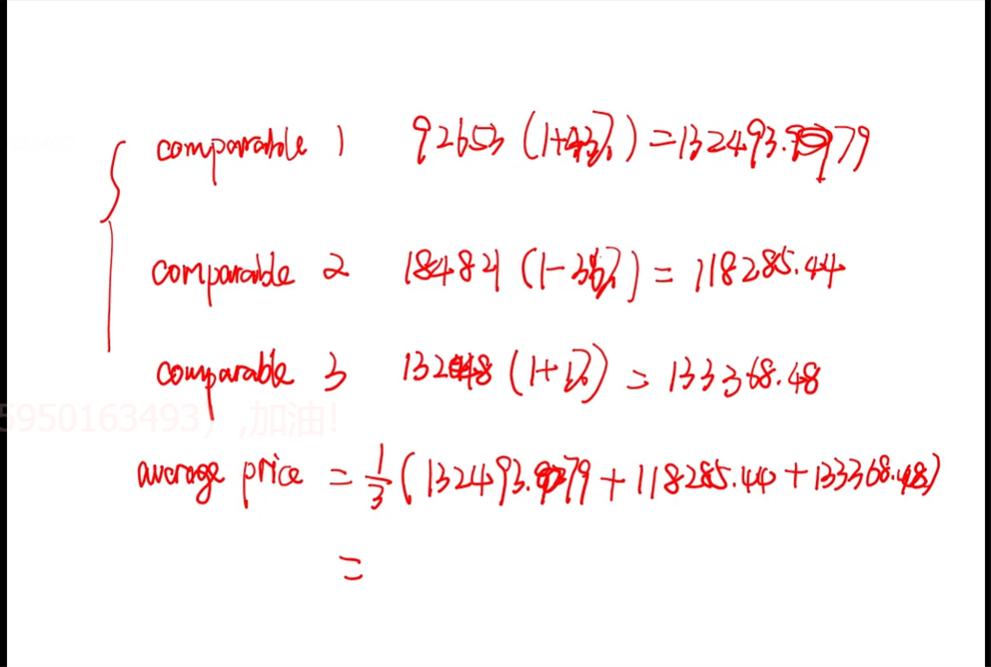 comparable 1 92653 (1+43%) = 132493.79
comparable 2 184821 (1-36%) = 118285.44
comparable 3 132048 (1+1%) = 133368.48
5950163493）,加油!
average price = 1/3 (132493.79 + 118285.44 + 133368.48)
=